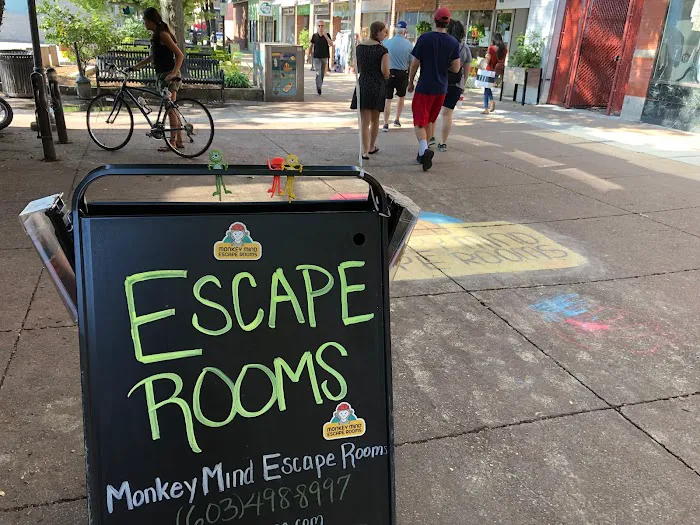 MONKEY MIND
ESCAPE ROOMS
ESCAPE
ROOMS
MONKEY MIND
ESCAPE ROOMS
MONKEY MIND ESCAPE ROOMS
(603)498-8997
.com
ESCAPE ROOMS